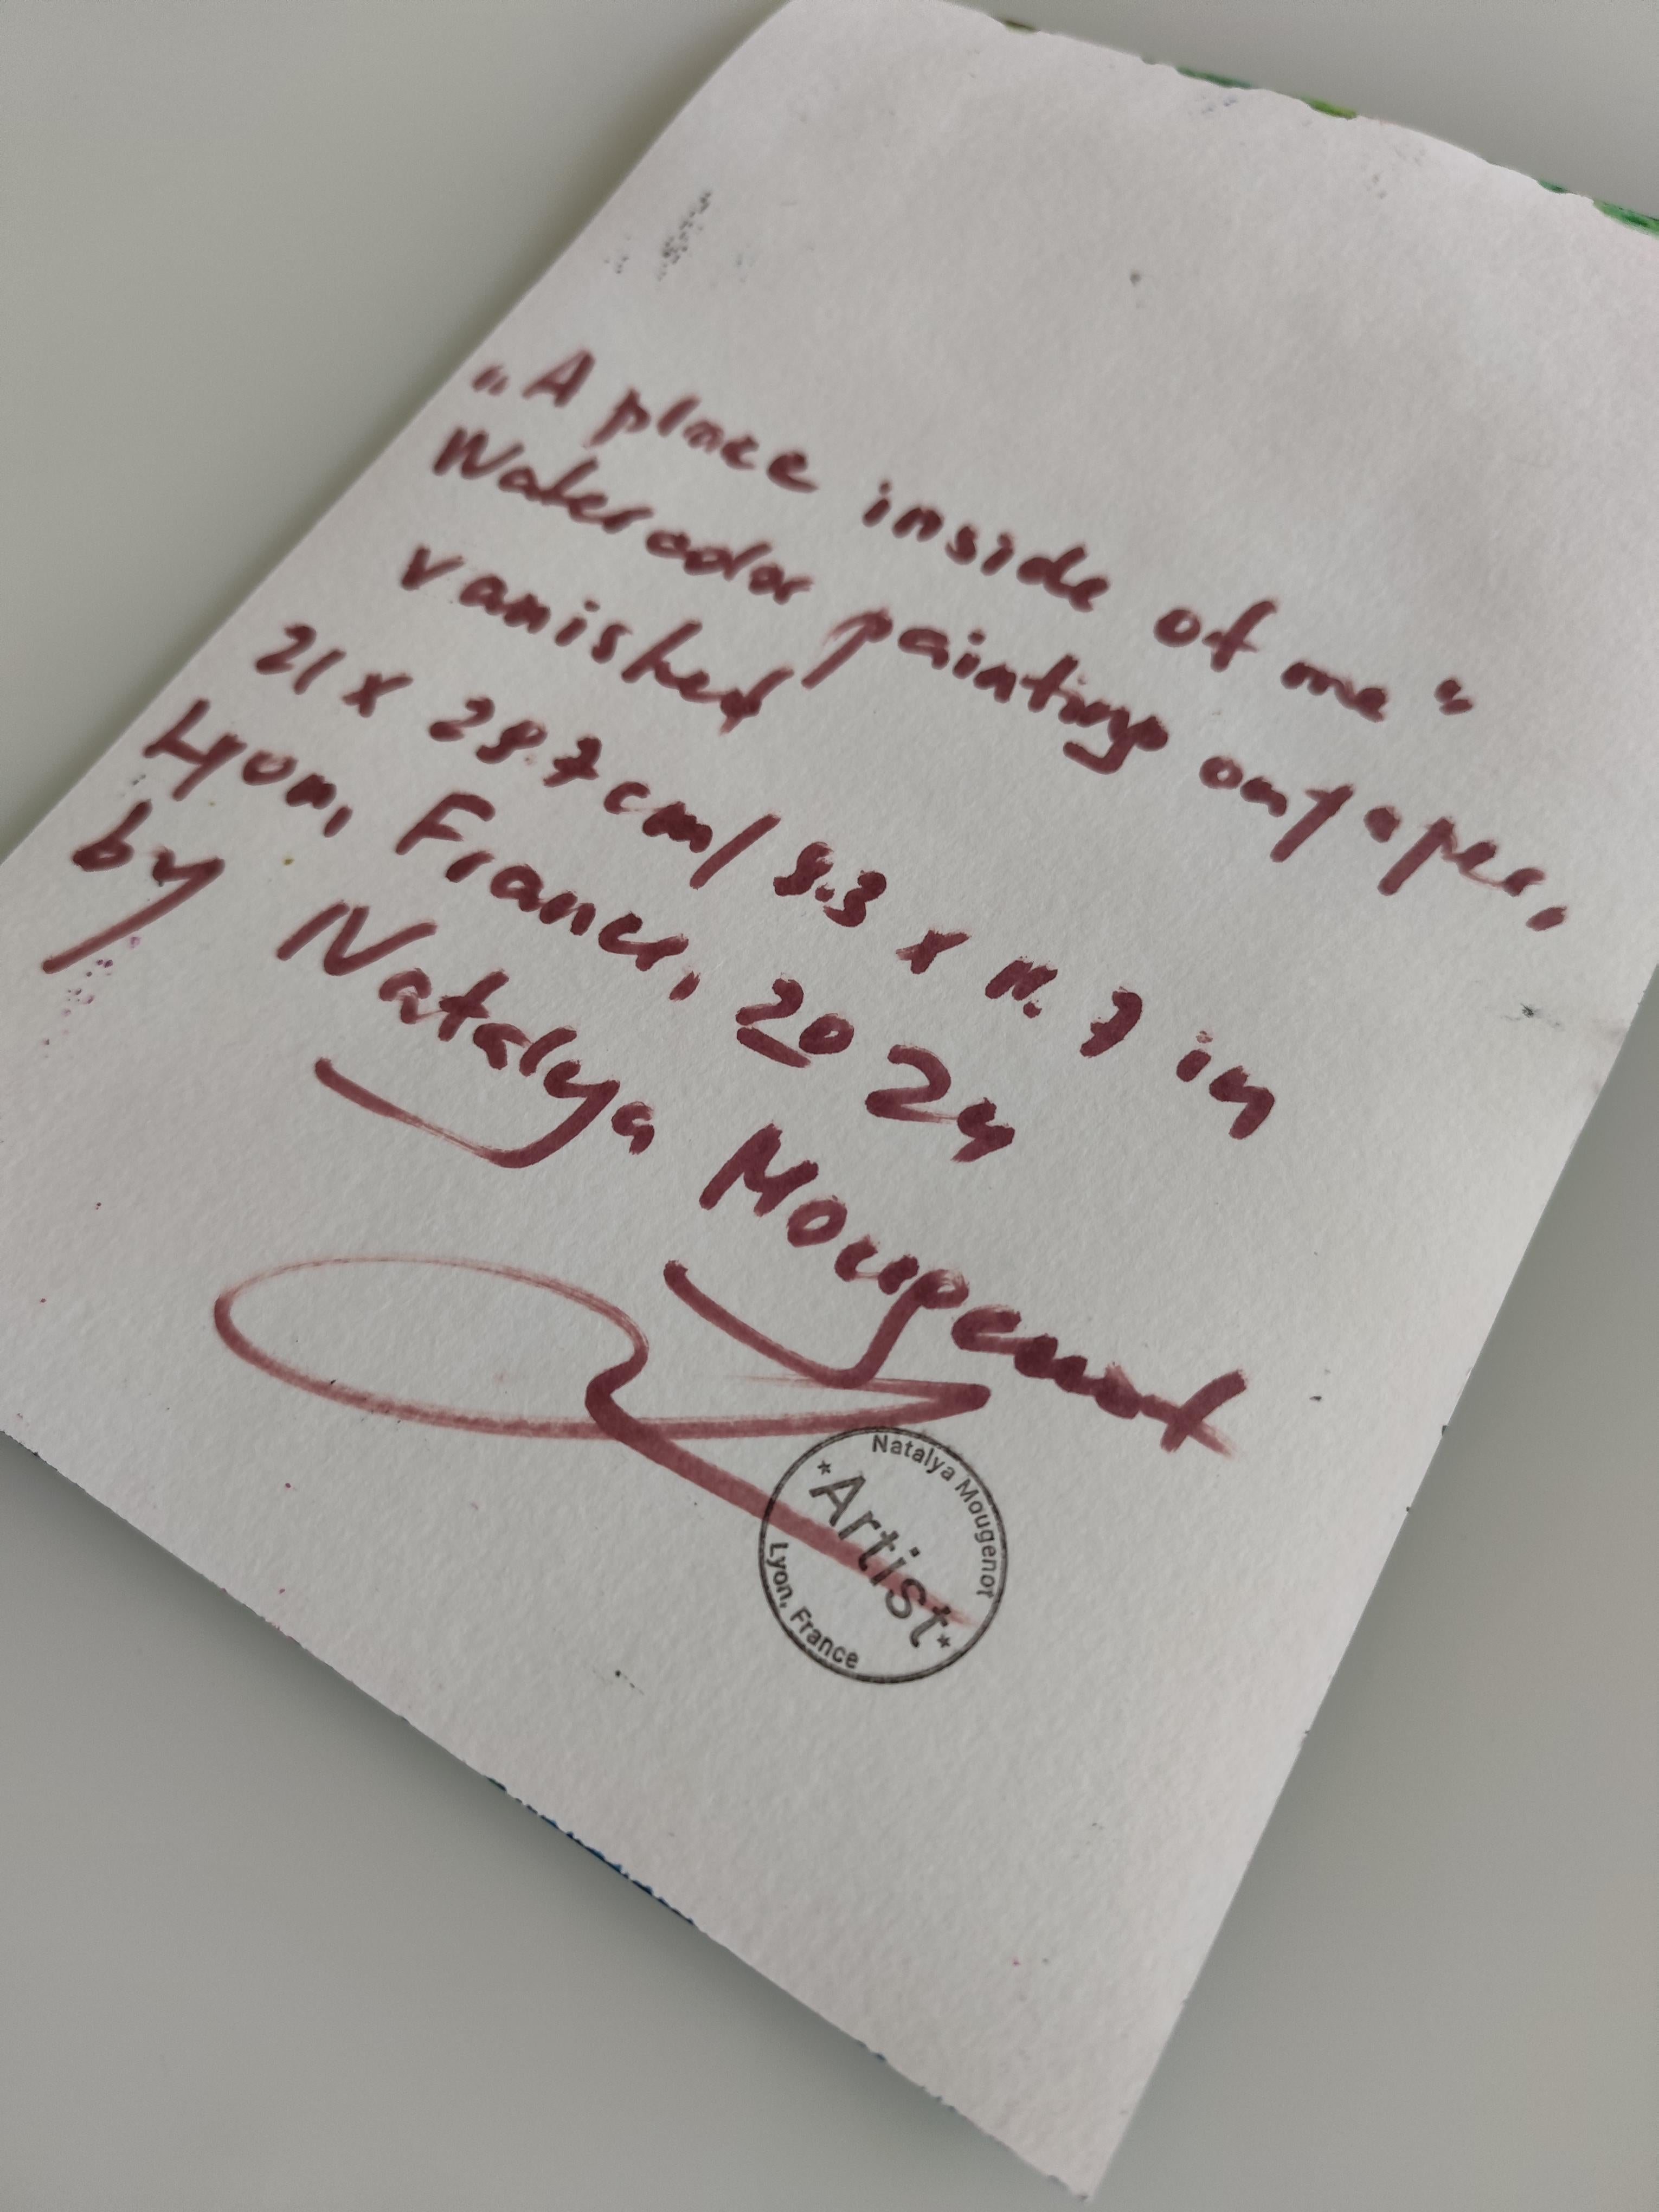 „A place inside of me"
Watercolor painting on paper,
vanished
21 x 29.7cm/ 8.3 x 11.7 in
Lyon, France, 2024
by Natalya Mougenot
Natalya Mougenot
*Artist*
Lyon, France